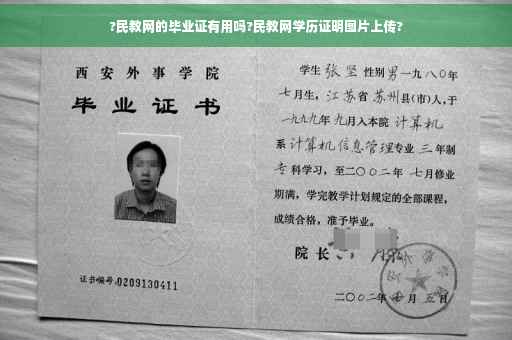 ?民教网的毕业证有用吗?民教网学历证明图片上传?
西安外事学院
毕业证书
证书编号:0209130411
学生 张坚 性别男一九八〇年
七月生,江苏省苏州县(市)人,于
一九九九年九月入本院 计算机
系 计算机信息管理专业 三 年制
专科学习,至二〇〇二年 七月修业
期满,学完教学计划规定的全部课程,
成绩合格,准予毕业。
院长
二〇〇二年 月五日